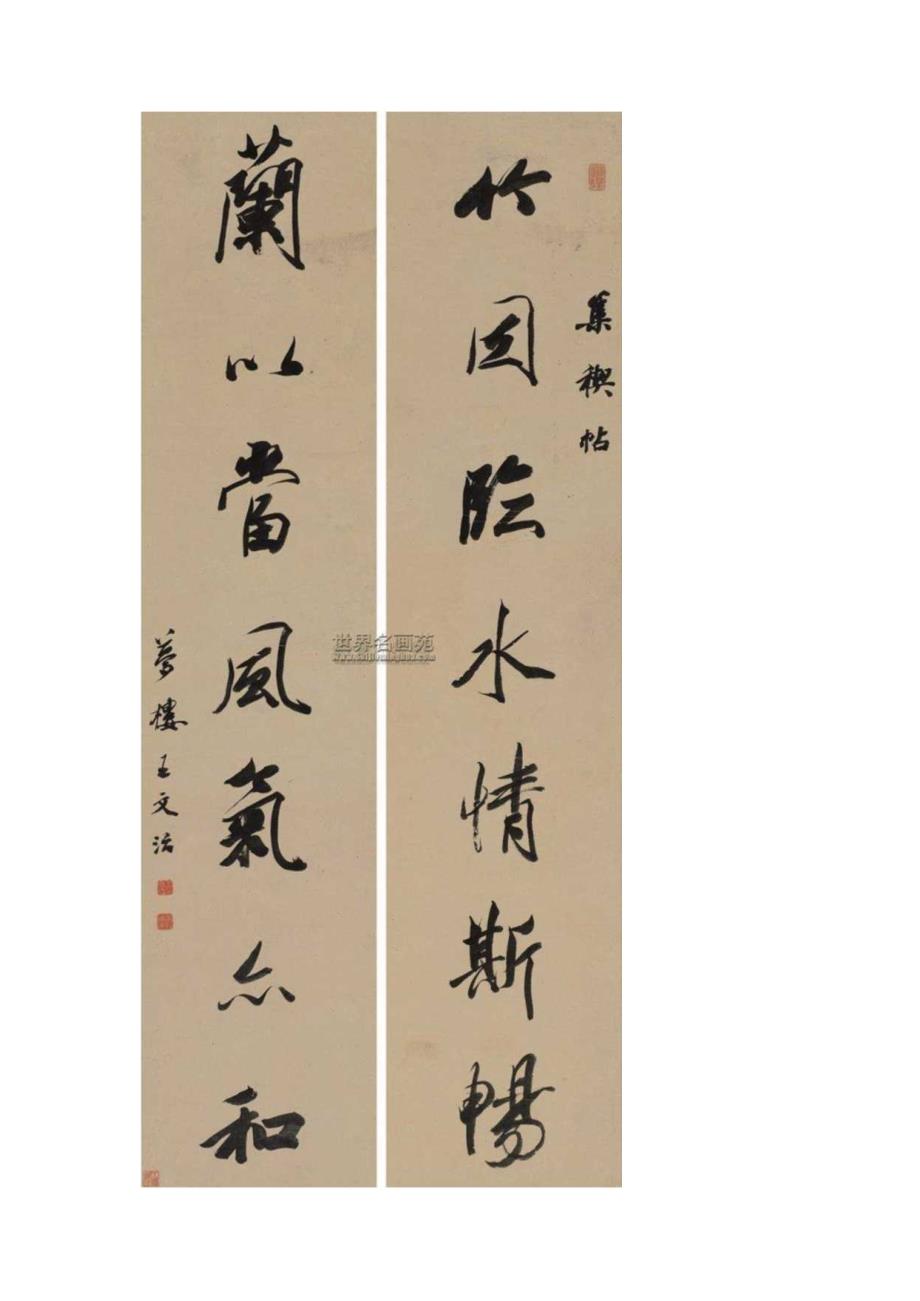 集禊帖
竹因臨水情斯暢
蘭以當風氣亦和
夢樓王文治
世界名画苑